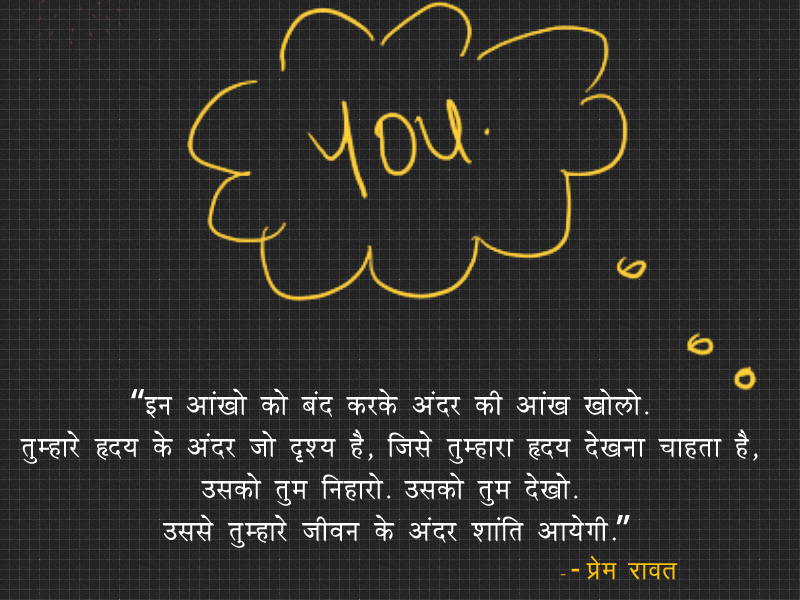 you.
“इन आंखो को बंद करके अंदर की आंख खोलो.
तुम्हारे हृदय के अंदर जो दृश्य है, जिसे तुम्हारा हृदय देखना चाहता है,
उसको तुम निहारो. उसको तुम देखो.
उससे तुम्हारे जीवन के अंदर शांति आयेगी.”
-- प्रेम रावत